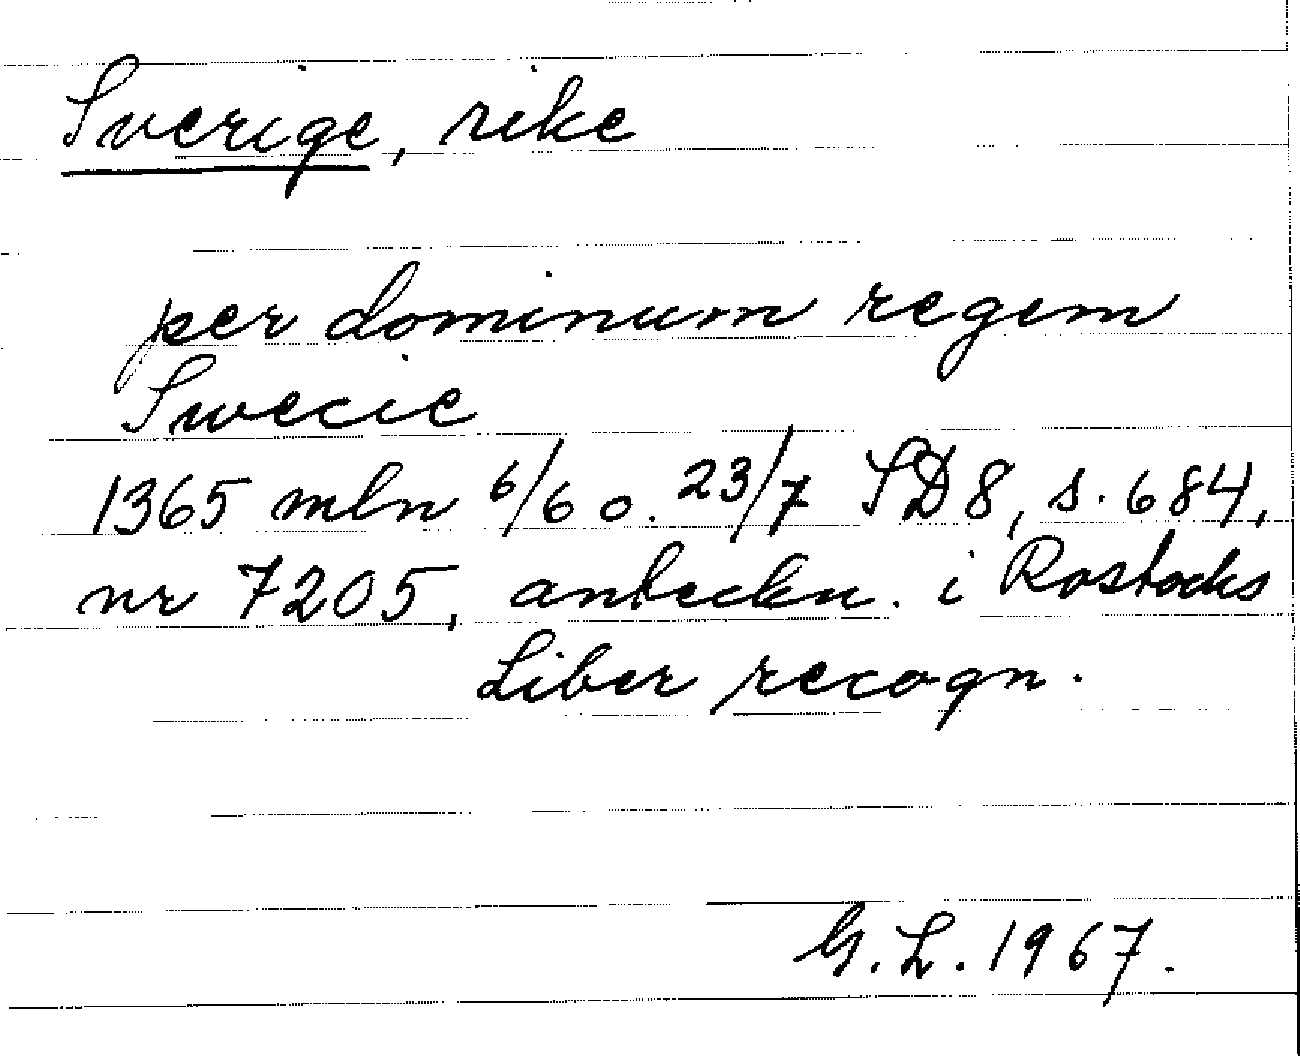 Sverige, rike
per dominum regem
Swecie
1365 mln 6/6 o. 23/7 SD 8, s. 684,
nr 7205, anteckn. i Rostocks
Liber recogn.
G. L. 1967.